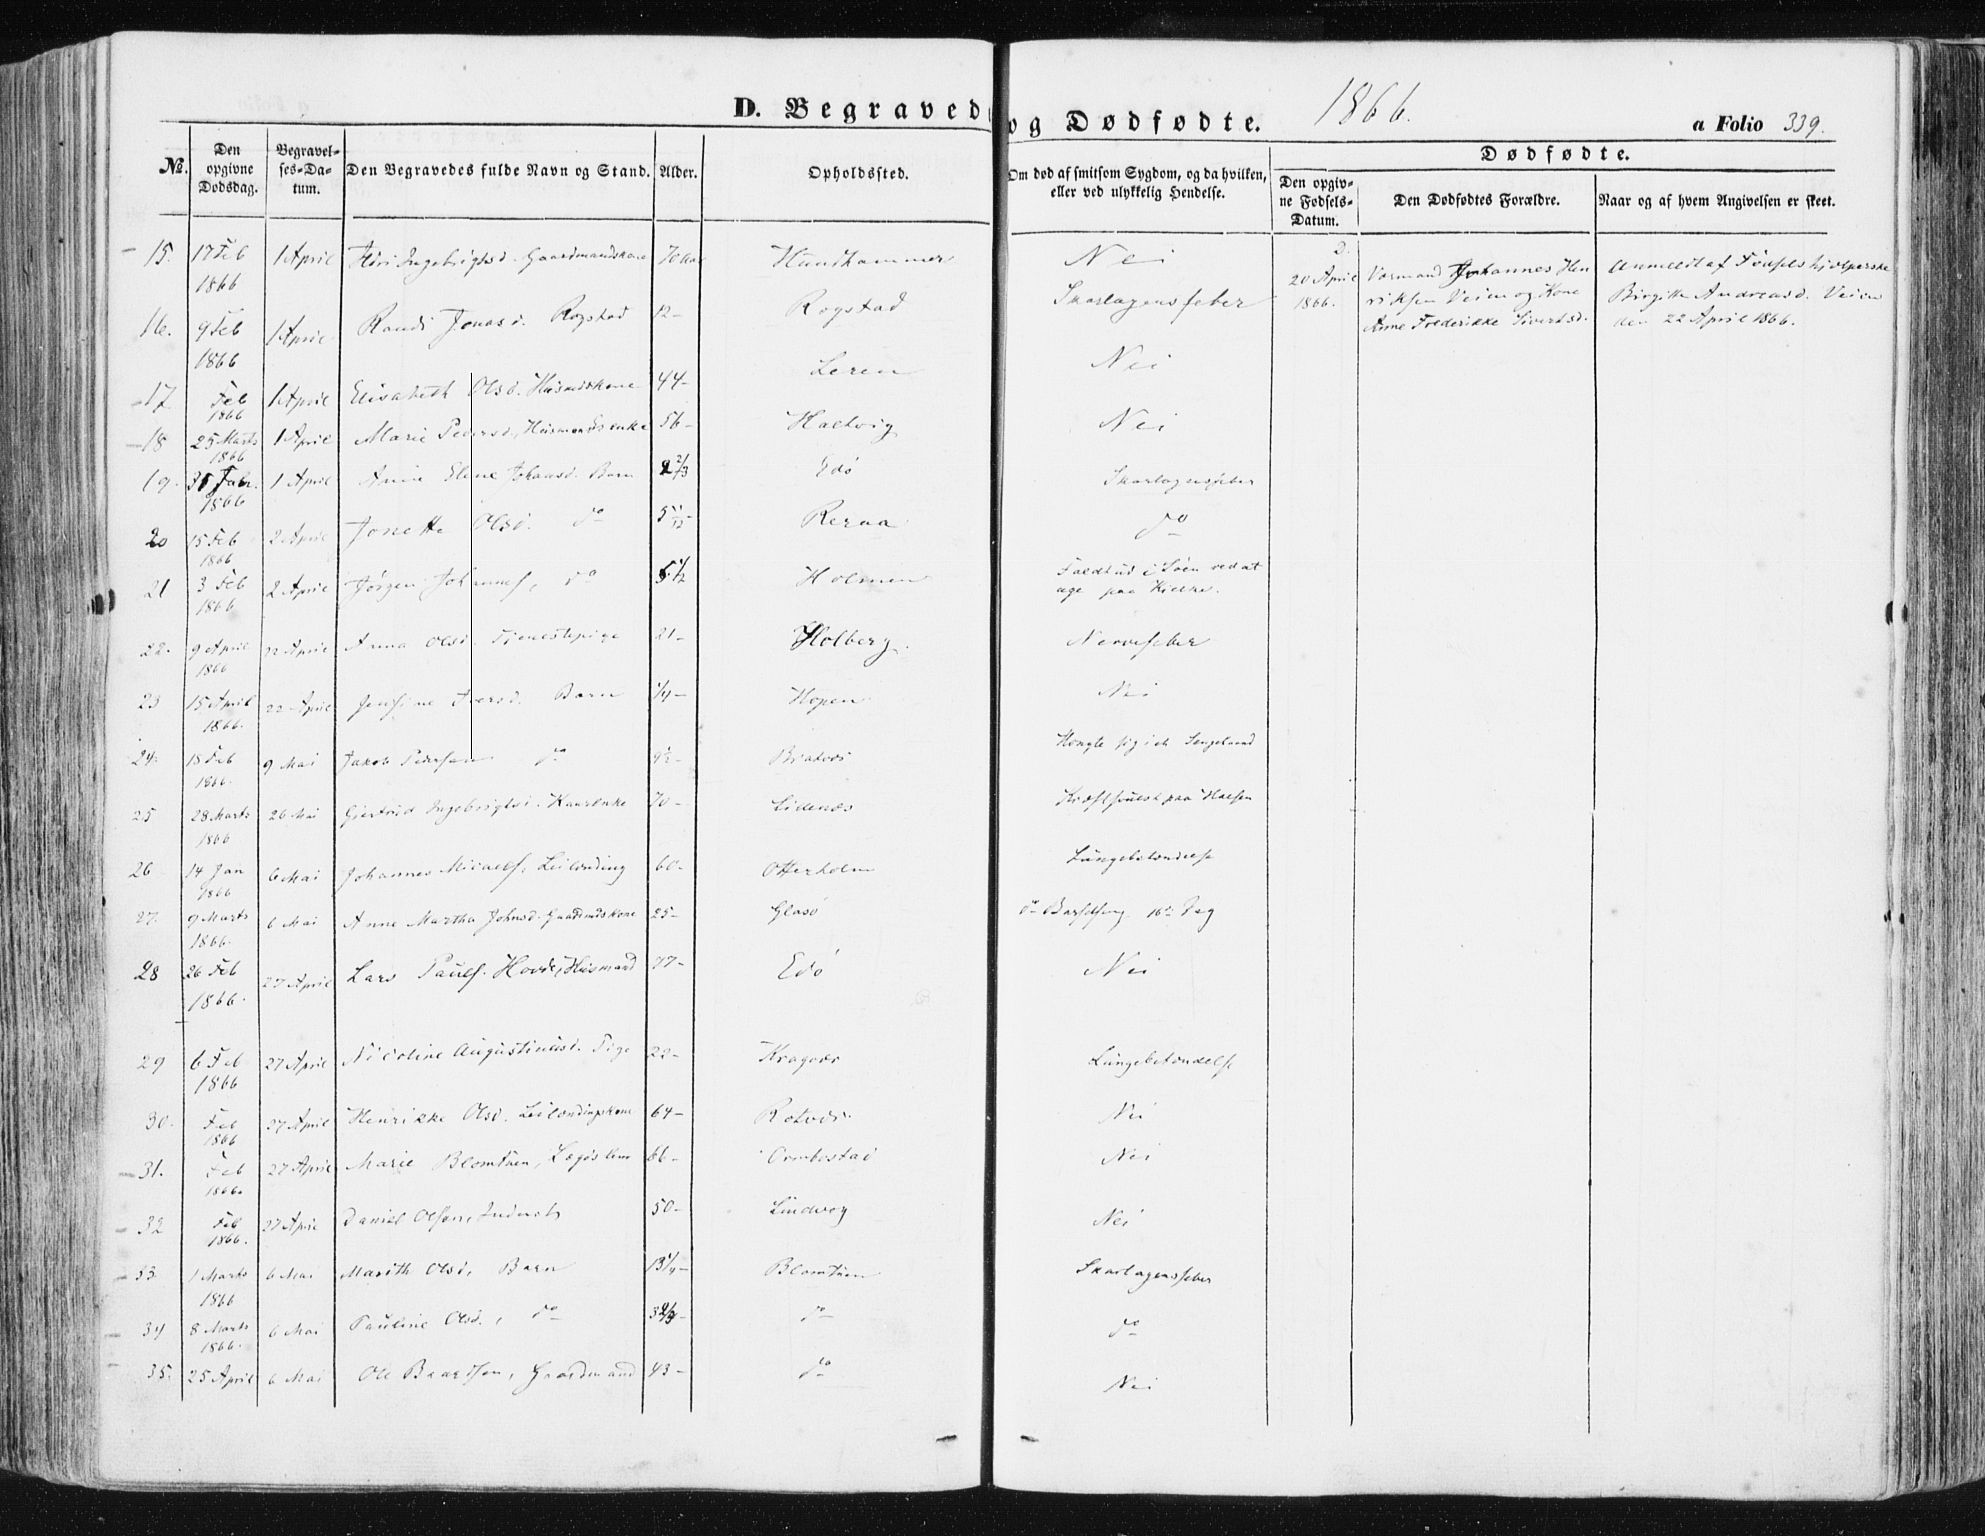 D. Begravede og Dødfødte. 1866. a Folio 339.
No. Den opgivne Dødsdag. Begravelses-Datum. Den Begravedes fulde Navn og Stand. Alder. Opholdssted. Om død af smitsom Sygdom, og da hvilken, eller ved ulykkelig Hendelse.
Dødfødte.
Den opgivne Fødsels-Datum. Den Dødfødtes Forældre. Naar og af hvem Angivelsen er skeet.
15. 17 Feb 1866 1 April Ingebrigtsd. Gaardmandskone 70 Aar Hundhammer Nei
16. 9 Feb 1866 1 April Randi Jonasd. Rogstad 12 - Rogstad Skarlagensfeber
17 Feb 1866 1 April Elisabeth Olsd. Husmdskone 44 - Leren Nei
18 25 Marts 1866 1 April Marie Pedersd., Husmandsenke 56 - Haltvig Nei
19. 1866 1 April Anne Elene Johansd. Barn 2 2/3 Edø Skarlagensfeber
20 15 Feb 1866 2 April Jonette Olsd. do 5 - Reraa do
21 3 Feb 1866 2 April Jørgen Johannesf, do 5 1/2 Holmen Faldt ud i Søen ved at age paa Kielke.
22. 9 April 1866 22 April Anna Olsd. Tjenestepige 21 - Holberg Nervefeber
23 15 April 1866. 22 April Jensine Iversd. Barn 1/4 - Hopen Nei
24. 18 Feb 1866. 9 Mai Jakob Pedersen do Bratvær Hengte sig i et Sengebaand
25 28 Marts 1866 26 Mai Giertrud Ingebrigtsd. Kaarenke 70 - Lidenæs Kræftsvulst paa Halsen
26 14 Jan 1866 6 Mai Johannes Micaelf. Leilænding 60 - Otterholm Lungebetændelse
27. 9 Marts 1866. 6 Mai Anne Martha Johnsd. Gaardmdskone 25 - Glasø do Barselseng 16de Dag
28 26 Feb 1866. 27 April Lars Paulf. Hovde, Husmand 77 - Edø Nei
29 6 Feb 1866 27 April Nicoline Augustinusd. Pige 22 - Kragvær Lungebetændelse
30. Feb 1866 27 April Henrikke Olsd. Leilændingskone 64 - Rotvær Nei
31. Feb 1866. 27 April Marie Blomtuen, Lægdslem 66 - Ormbostad Nei
32 Feb 1866. 27 April Daniel Olsen, Inderst 50 - Lindvog Nei
33. 1 Marts 1866 6 Mai Marith Olsd, Barn 13 1/4 - Blomtuen Skarlagensfeber
34 8 Marts 1866. 6 Mai Pauline Olsd., do do do
35. 25 April 6 Mai Ole Baardsen, Gaardmand 43 - do Nei
2.
20 April 1866. Johannes Henriksen Veien og Kone Anne Frederikke Sivertsd. Anmeldt af Fødselshjelperske Birgitte Andreasd. Veien den 22 April 1866.